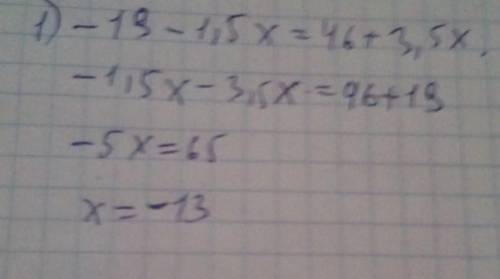 1) -19 - 1,5x = 46 + 3,5x.
-1,5x - 3,5x = 46 + 19
-5x = 65
x = -13